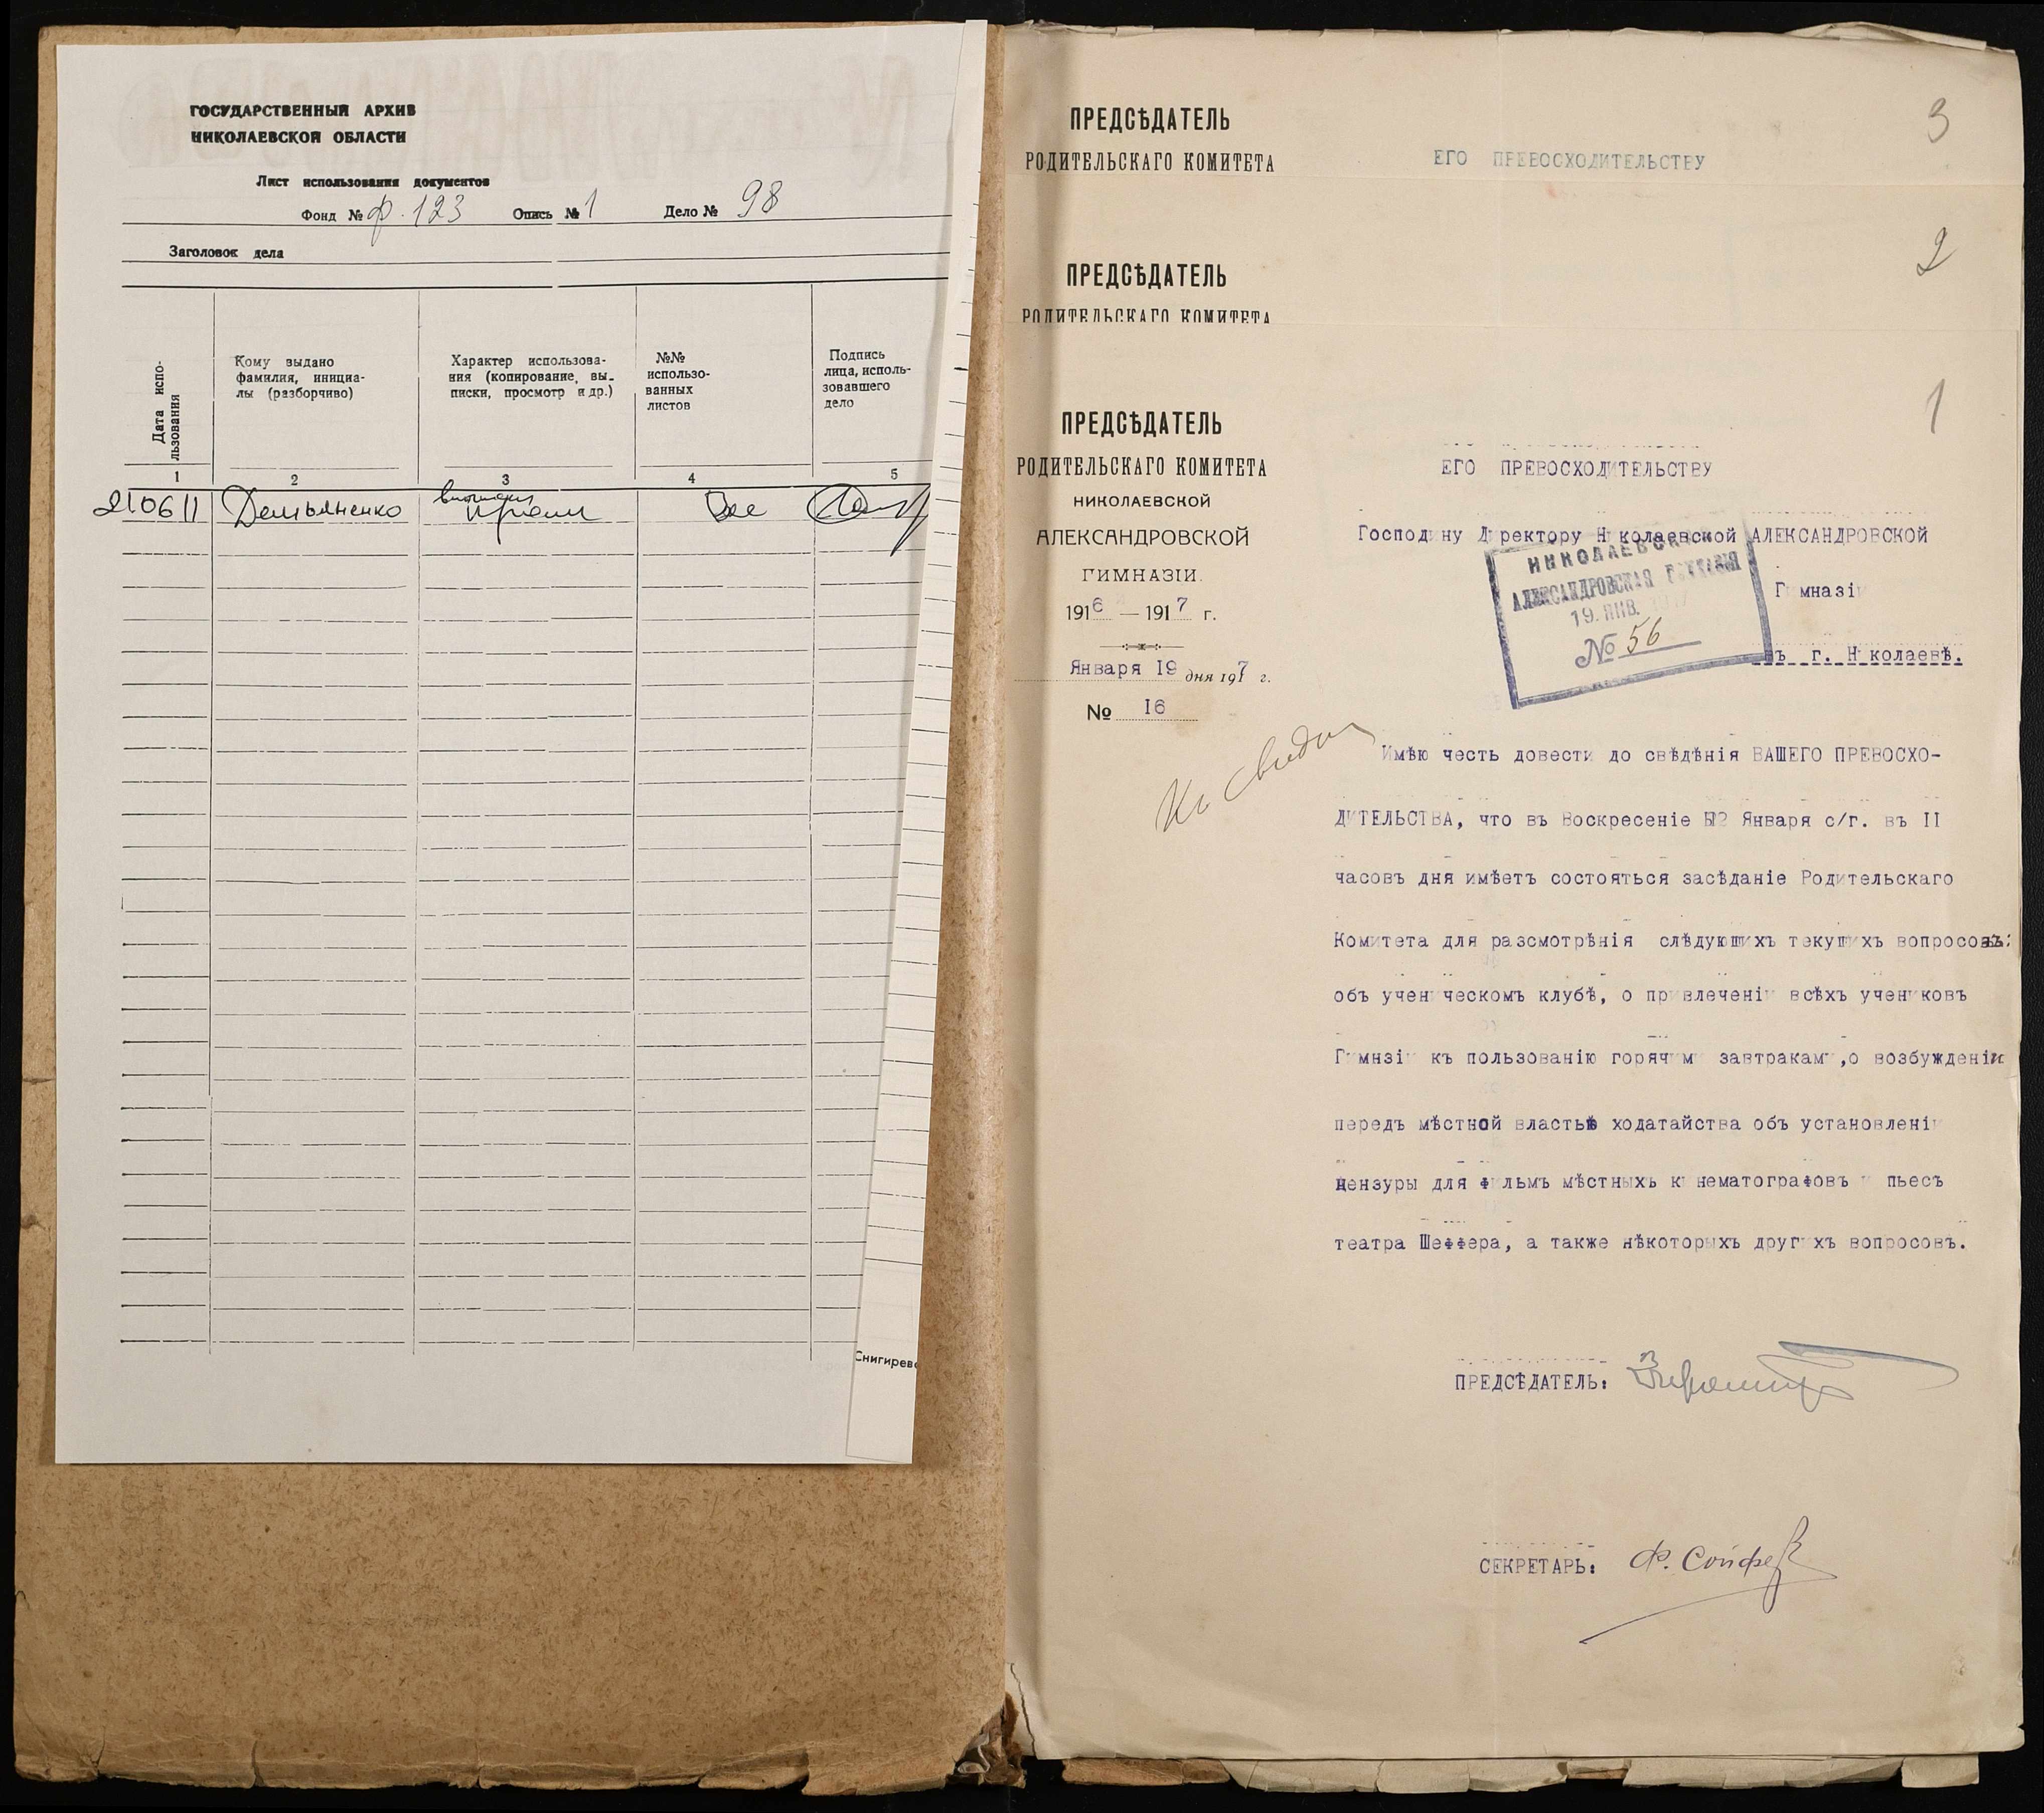 ГОСУДАРСТВЕННЫЙ АРХИВ
НИКОЛАЕВСКОЙ ОБЛАСТИ
Лист использования документов
Фонд № Ф. 123 Опись № 1 Дело № 98
Заголовок дела
Дата испо-
льзования
Кому выдано
фамилия, инициа-
лы (разборчиво)
Характер использова-
ния (копирование, вы-
писки, просмотр и др.)
№№
использо-
ванных
листов
Подпись
лица, исполь-
зовавшего
дело
1 2 3 4 5
210611 Демьяненко Все
Снигирев
ПРЕДСѢДАТЕЛЬ
РОДИТЕЛЬСКАГО КОМИТЕТА
ЕГО ПРЕВОСХОДИТЕЛЬСТВУ
3
ПРЕДСѢДАТЕЛЬ
РОДИТЕЛЬСКАГО КОМИТЕТА
2
1
ПРЕДСѢДАТЕЛЬ
РОДИТЕЛЬСКАГО КОМИТЕТА
НИКОЛАЕВСКОЙ
АЛЕКСАНДРОВСКОЙ
ГИМНАЗІИ.
1916 — 1917 г.
Января 19 дня 1917 г.
№ 16
ЕГО ПРЕВОСХОДИТЕЛЬСТВУ
Господину Директору Николаевской АЛЕКСАНДРОВСКОЙ
Гимназіи
въ г. Николаевѣ.
НИКОЛАЕВСКАЯ
АЛЕКСАНДРОВСКАЯ ГИМНАЗІЯ
19. ЯНВ. 1917
№ 56
Къ свѣдѣн
Имѣю честь довести до свѣдѣнія ВАШЕГО ПРЕВОСХО-
ДИТЕЛЬСТВА, что въ Воскресеніе 22 Января с/г. въ II
часовъ дня имѣетъ состояться засѣданіе Родительскаго
Комитета для разсмотрѣнія слѣдующихъ текущихъ вопросовъ:
объ ученическомъ клубѣ, о привлеченіи всѣхъ учениковъ
Гимнзіи къ пользованію горячими завтраками,о возбужденіи
передъ мѣстной властью ходатайства объ установленіи
цензуры для фильмъ мѣстныхъ кинематографовъ и пьесъ
театра Шеффера, а также нѣкоторыхъ другихъ вопросовъ.
ПРЕДСѢДАТЕЛЬ:
СЕКРЕТАРЬ: Ф. Сойфер